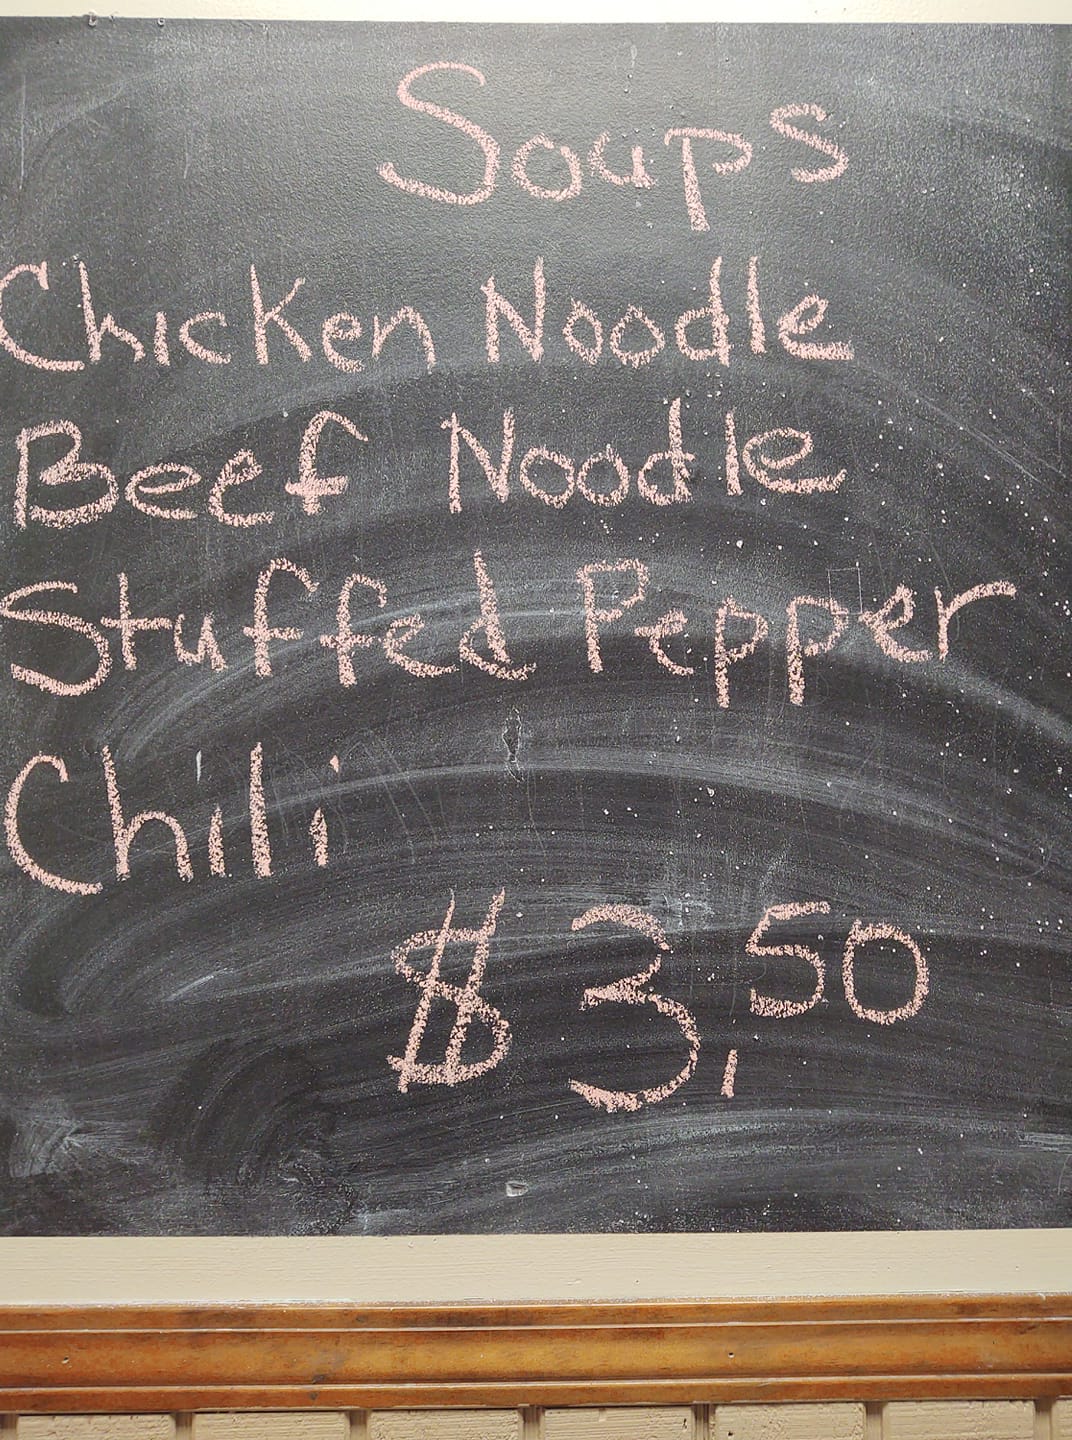 Soups
Chicken Noodle
Beef Noodle
Stuffed Pepper
Chili
$3.50